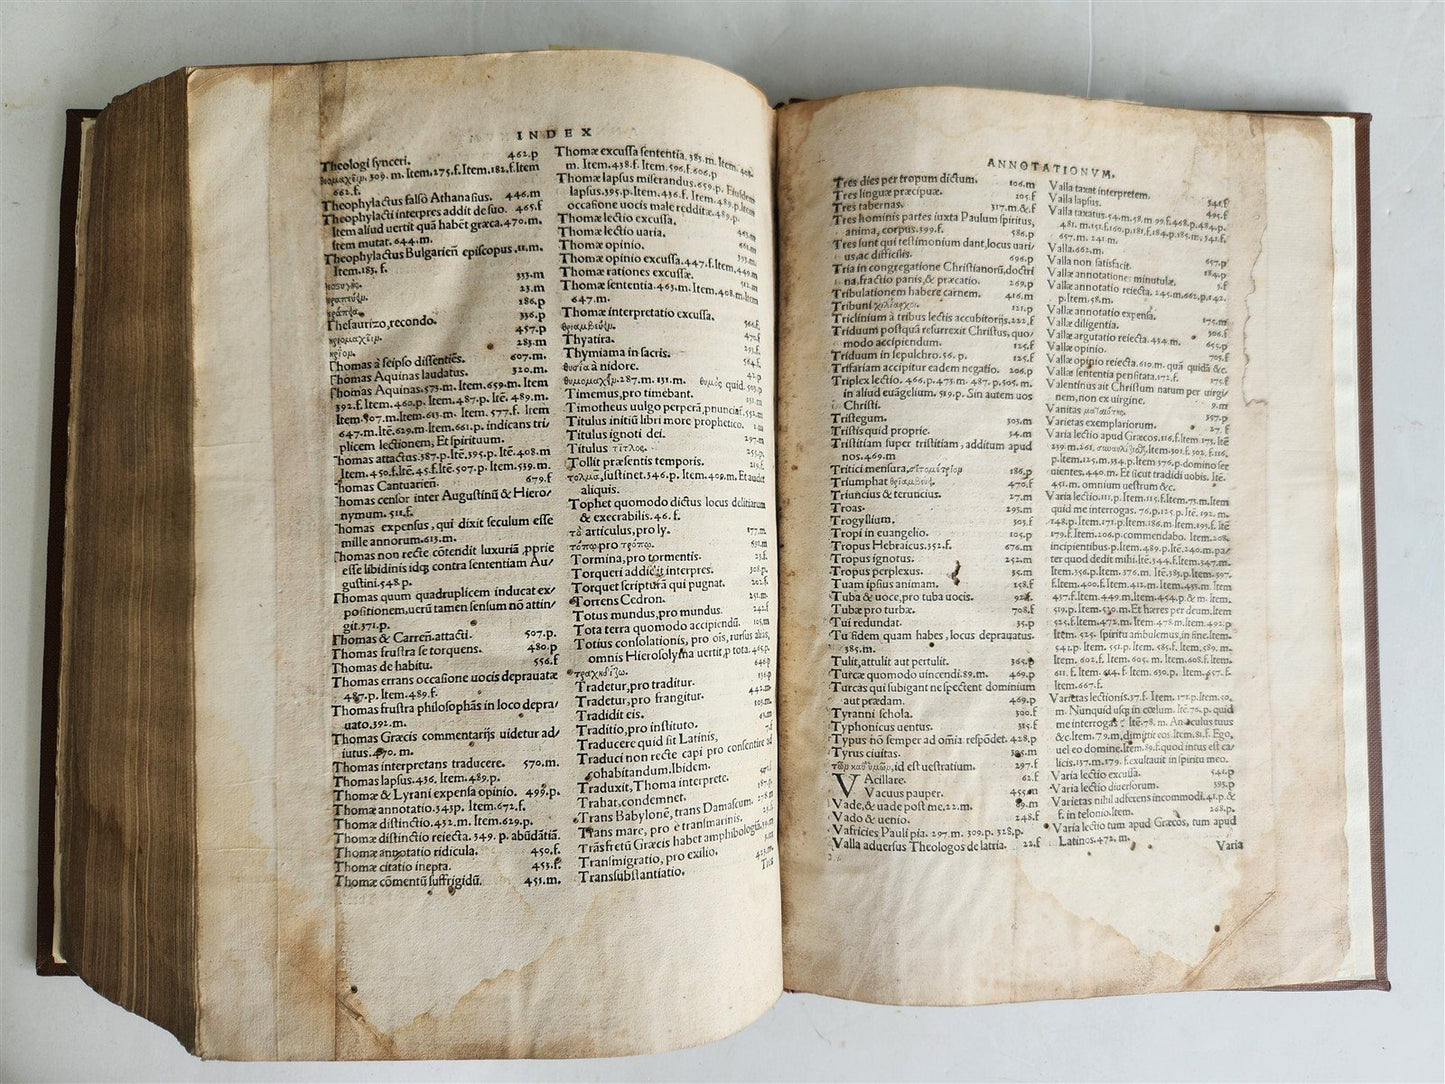 INDEX
Theologi synceri. 462.p
309. m. Item. 275. f. Item. 182. f. Item
662. f.
Theophylactus falso Athanasius. 446.m
Theophylacti interpres addit de suo. 465.f
Item aliud uertit quā habēt græca. 470. m.
Item mutat. 644. m.
Theophylactus Bulgarieñ episcopus. 11. m.
Item. 183. f.
333.m
23.m
186.p
336.p
Thesaurizo, recondo. 457.p
283.m
607.m.
Thomas à seipso dissentiēs. 320.m.
Thomas Aquinas laudatus.
Thomas Aquinas. 573. m. Item. 659. m. Item
392. f. Item. 460. p. Item. 487. p. Itē. 489. m.
Item. 507. m. Item. 613. m. Item. 577. f. Item
647. m. Itē. 629. m. Item. 661. p. indicans tri/
plicem lectionem, Et spirituum.
Thomas attactus. 387. p. Itē. 395. p. Itē. 408. m
Item. 450. f. Itē. 45. f. Itē. 507. p. Item. 539. m.
Thomas Cantuarieñ. 679.f
Thomas censor inter Augustinū & Hiero/
nymum. 511. f.
Thomas expensus, qui dixit seculum esse
mille annorum. 613. m.
Thomas non recte cōtendit luxuriā ,pprie
esse libidinis idq; contra sententiam Au/
gustini. 548. p.
Thomas quum quadruplicem inducat ex/
positionem, uerū tamen sensum nō attin/
git. 371. p.
Thomas & Carreñ. attacti. 507.p.
Thomas frustra se torquens. 480.p
Thomas de habitu. 556.f
Thomas errans occasione uocis deprauatæ
487. p. Item. 489. f.
Thomas frustra philosophās in loco depra/
uato. 392. m.
Thomas Græcis commentarijs uidetur ad/
iutus. 470. m.
Thomas interpretans traducere. 570.m.
Thomas lapsus. 436. Item. 489. p.
Thomæ & Lyrani expensa opinio. 499.p.
Thomæ annotatio. 343p. Item. 672. f.
Thomæ distinctio. 432. m. Item. 629. p.
Thomæ distinctio reiecta. 349. p. abūdātiā.
Thomæ annotatio ridicula. 450.f.
Thomæ citatio inepta. 453.f.
Thomæ cōmentū suffrigidū. 451.m.
Thomæ excussa sententia. 383. m. Item. 408.
m. Item. 438. f. Item. 596. f. 606. p
Thomæ lapsus miserandus. 659. p. Eiusdem
lapsus. 395. p. Item. 436. f. Item. 489. p. Item
occasione uocis male redditæ. 489. p.
Thomæ lectio excussa.
Thomæ lectio uaria.
Thomæ opinio.
Thomæ opinio excussa. 447. f. Item. 449. m
Thomæ rationes excussæ.
Thomæ sententia. 463. m. Item. 408. m. Item
647. m.
Thomæ interpretatio excussa.
Thyatira.
Thymiama in sacris.
θυσία à nidore.
θυμομαχεῖν. 287. m. 131. m. θυμὸς quid.
Timemus, pro timebant.
Timotheus uulgo perperā, pnunciaf. 552. m
Titulus initiū libri more prophetico.
Titulus ignoti dei. 297.m
Titulus τίτλος.
Tollit præsentis temporis.
τολμᾶ, sustinet. 346. p. Item. 409. m. Et audet
aliquis.
Tophet quomodo dictus locus delitiarum
& execrabilis. 46. f.
τὸ articulus, pro ly. 177.m.
τόπῳ pro τρόπῳ. 592.m
Tormina, pro tormentis. 23.f.
Torqueri addidit interpres. 308.p.
Torquet scripturā qui pugnat. 202.f.
Torrens Cedron. 251.m.
Totus mundus, pro mundus. 242.f
Tota terra quomodo accipiendū. 105,m
Totius consolationis, pro oīs, rursus alias,
omnis Hierosolyma uertit, p tota. 465. p.
646.p
136.p
Tradetur, pro traditur. 442.m
Tradetur, pro frangitur. 103.m.
Tradidit eis.
Traditio, pro instituto.
Traducere quid sit Latinis,
Traduci non recte capi pro consentire ad
cohabitandum. Ibidem.
Traduxit, Thoma interprete.
Trahat, condemnet.
Trans Babylonē, trans Damascum. 278. m
Trans mare, pro è transmarinis.
Trāsfretū Græcis habet amphibologiā.
Transmigratio, pro exilio.
Transubstantiatio.
Tres
ANNOTATIONVM.
Tres dies per tropum dictum. 106.m
Tres linguæ præcipuæ. 105.f
Tres tabernas. 317.m.&.f
Tres hominis partes iuxta Paulum spiritus,
anima, corpus. 599. f. 586.p
Tres sunt qui testimonium dant, locus uari/
us, ac difficilis. 696.p
Tria in congregatione Christianorū, doctri
na, fractio panis, & præcatio. 269.p
Tribulationem habere carnem. 416.m
Tribuni χιλίαρχοι. 121.p
Triclinium à tribus lectis accubitorijs. 222. f
Triduum postquā resurrexit Christus, quo/
modo accipiendum. 125.f
Triduum in sepulchro. 56. p. 125.f
Trifariam accipitur eadem negatio. 206.p
Triplex lectio. 466. p. 475. m. 487. p. 505. m.
in aliud euāgelium. 519. p. Sin autem uos
Christi.
Tristegum. 303.m
Tristis quid proprie. 34.m
Tristitiam super tristitiam, additum apud
nos. 469. m
Tritici mensura, σιτομέτριον 186.p
Triumphat 470.f
Triuncius & teruncius. 27.m
Troas. 293.m
Trogyllium. 303.f
Tropi in euangelio. 105.p
Tropus Hebraicus. 352. f. 676.m
Tropus ignotus. 252.m
Tropus perplexus. 35.m
Tuam ipsius animam. 158.f
Tuba & uoce, pro tuba uocis. 92.f
Tubæ pro turbæ. 708.f
Tui redundat. 35.p
Tu fidem quam habes, locus deprauatus.
385. m.
Tulit, attulit aut pertulit. 365.p
Turcæ quomodo uincendi. 89. m. 469.p
Turcas qui subigant ne spectent dominium
aut prædam. 469.p
Tyranni schola. 300.f
Typhonicus uentus. 315.f
Typus nō semper ad omīa respōdet. 428.p
Tyrus ciuitas. 305.m
id est uestratium. 297.f
VAcillare. 62.f
Vacuus pauper. 455.m
Vade, & uade post me. 22. m. 89.m
Vado & uenio. 248.f
Vafricies Pauli pia. 297. m. 309. p. 328. p.
Valla aduersus Theologos de latria. 22.f
Valla taxat interpretem. 541.f
Valla lapsus. 495.f
Valla taxatus. 54. m. 58. m 99. f. 468. p. 484. p.
481. m. 151. f. 160. p. 181. f. 184. p. 185. m. 541. f.
657. m. 241 m.
Valla. 662. m.
Valla non satisfacit. 657.p
Vallæ annotatione minutulæ. 184.p
Vallæ annotatio reiecta. 245. m. 662. p. 142. 3.f
p. Item. 58. m.
Vallæ annotatio expensa. 175.m
Vallæ diligentia. 306.f
Vallæ argutatio reiecta. 434. m. 655.p
Vallæ opinio. 703.f
Vallæ opinio reiecta. 610. m. quā quidā &c.
Vallæ sententia pensitata. 172. f. 175.f
Valentinus ait Christum natum per uirgi/
nem, non ex uirgine. 9.m
Vanitas ματαιότης. 357.p
Varietas exemplariorum. 27.f
Varia lectio apud Græcos. 116. f. Item. 173. Itē
239. m. 261. Item. 301. f. 302. f. 116.
p. Item. 125. m. 334. p. Item 376. p. domino ser
uientes. 440. m. Et sicut tradidi uobis. Itē.
451. m. omnium uestrum &c.
Varia lectio. 111. p. Item. 115. f. Item. 73. m. Item
quid me interrogas. 76. p. 125. p. Itē. 192. m.
148. p. Item. 171. p Item. 186. m Item. 193. f. Itē
179. f. Item. 206. p commendabo. Item. 208.
incipientibus. p. Item. 489. p. Itē. 240. m. pa/
ter quod dedit mihi. Itē. 244. f. Item. 247. m.
Item. 356. p Item. 376. m. Item. 383. p. Item. 397.
f. Item. 400. f. Item. 412. m. Item. 433. m. Item
437. f. Item. 449. m. Item. 454. p & m. Item.
519. p. Item. 530. m. Et hæres per deum. Item
525. f. Item. 472. m. Item. 478. m. Item. 492. p
Item. 525. spiritu ambulemus, in fine. Item.
541. p. Item. 551. p. Item. 585. f. Item. 589. m.
Item. 602. f. Item. 605. m. Item. 608. f. Item.
611. f. Item. 614. f. Item. 630. p. Item. 657. f.
Item. 667. f.
Varietas lectionis. 37. f. Item. 171. p. Item. 50.
m. Nunquid usq; in cœlum. Itē. 76. p. quid
me interrogas? Itē. 78. m. An oculus tuus
&c. Item. 79. m, dimittite eos. Item. 81. f. Ego,
uel eo domine. Item. 89. f. quod intus est ca/
licis. 137. m. 179. f. exultauit in spiritu meo.
Varia lectio excussa. 541.p
Varia lectio diuersorum. 593.p
Varietas nihil adferens incommodi. 41. p. &
f. in telonio. Item. 268.p.
Varia lectio tum apud Græcos, tum apud
Latinos. 472. m.
Varia